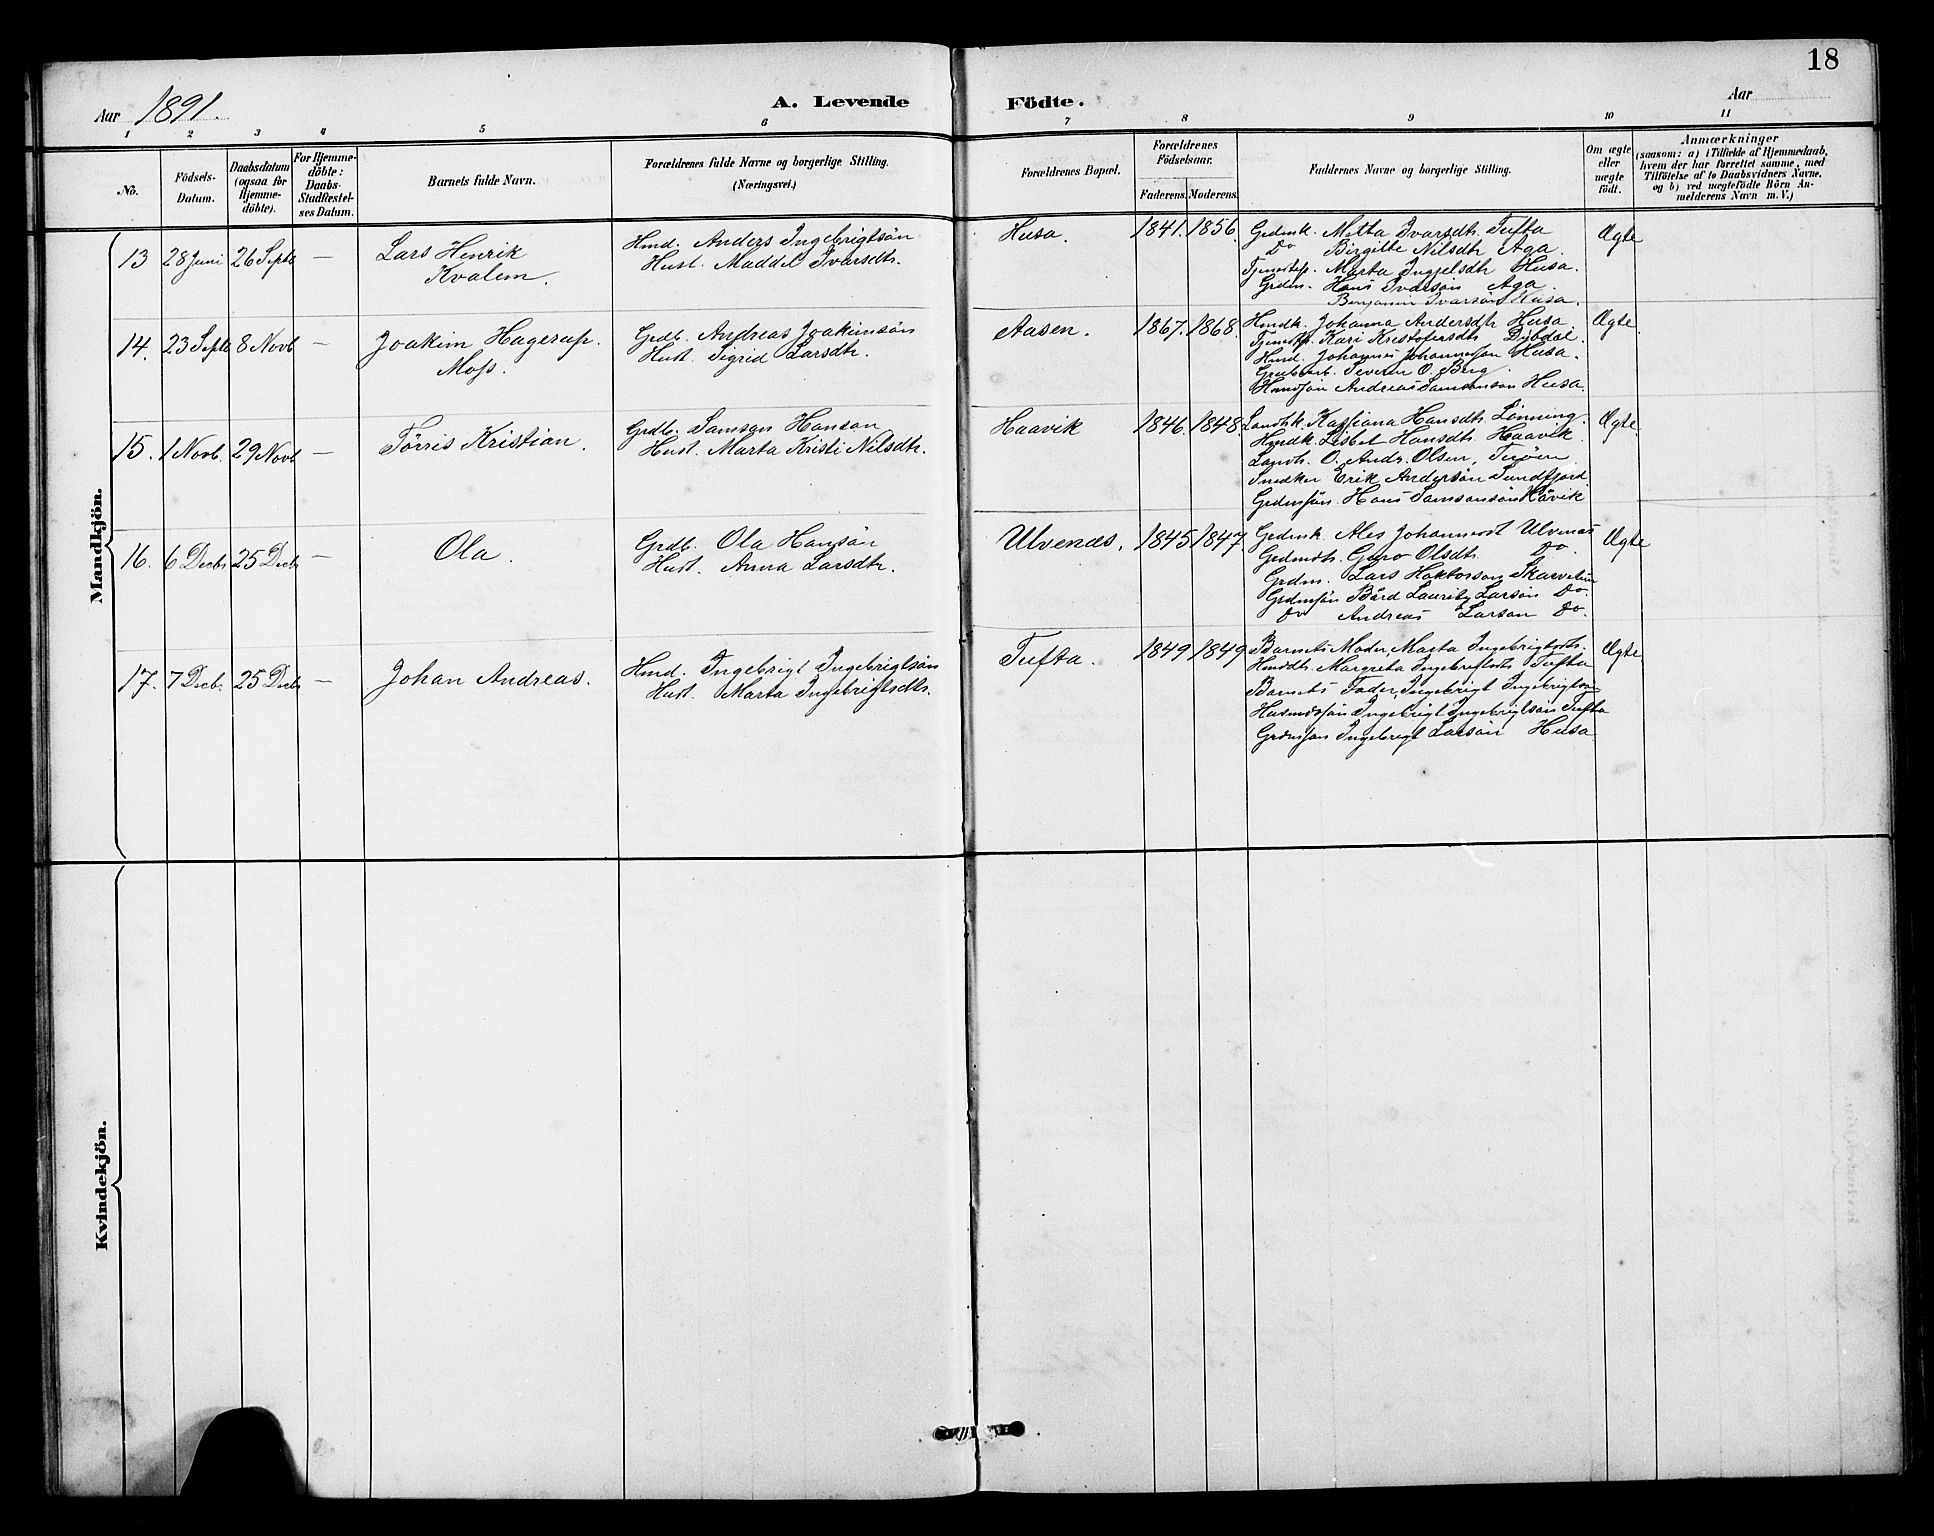 18
Aar 1891. A. Levende Födte. Aar
1 2 3 4 5 6 7 8 9 10 11
No. Födsels-Datum. Daabsdatum (ogsaa for Hjemme-döbte). For Hjemme-döbte: Daabs-Stadfæstel-ses Datum. Barnets fulde Navn. Forældrenes fulde Navne og borgerlige Stilling. (Næringsvei.) Forældrenes Bopæl. Forældrenes Födselsaar. Faderens. Moderens. Faddernes Navne og borgerlige Stilling. Om ægte eller uægte födt. Anmærkninger (saasom: a) i Tilfælde af Hjemmedaab, hvem der har forrettet samme, med Tilföielse af to Daabsvidners Navne, og b) ved uægtefödte Börn An-melderens Navn m. V.)
Mandkjön.
13 28 Juni 26 Septb — Lars Henrik Kvalem. Hmd. Anders Ingebrigtsön
Hust. Maddel Ivarsdtr. Husa. 1841. 1856. Ægte
Grdmk. Metta Ivarsdtr. Tufta
Do Birgitte Nilsdtr Aga
Tjenestep. Marta Ingjelsdtr Husa.
Grdm. Hans Ivarsön Aga.
Benjamin Ivarsön Husa.
14. 23 Septb 8 Novb — Joakim Hagerup. Moss. Grdb. Andreas Joakimsön
Hust. Sigrid Larsdtr. Aasen. 1867. 1868. Ægte.
Hmdk. Johanna Andersdtr Husa
Tjenestp. Kari Kristofersdtr Dybdal.
Hmd. Johannes Johannesson Husa.
Severin O. Berg.
Hmdsön Andreas Samsonson Husa.
15. 1 Novb. 29 Novb — Törris Kristian. Grdb. Samson Hanson
Hust. Marta Kristi Nilsdtr. Haavik 1846. 1848. Ægte.
Landhk. Kassiana Hansdtr. Lönning.
Hmdk. Lisbet Hansdtr. Haavik.
Landh. O. Andr. Olsen,
Snedker Erik Andersön Sundfjord
Grdmsön. Hans Samsonsön Håvik
16. 6 Decbr 25 Decbr — Ola. Grdb. Ola Hansön
Hust. Anna Larsdtr. Ulvenæs. 1845 1847. Ægte
Grdmk. Ales Johannesdt Ulvenæs
Grdmdtr. Guro Olsdtr. Do.
Grdm. Lars
Grdmsön Bård Lauritz Larsön Do.
Do Andreas Larson Do.
17. 7 Decbr. 25 Decbr — Johan Andreas. Hmd. Ingebrigt Ingebrigtsön
Hust. Marta Ingebrigtsdtr. Tufta. 1849 1849 Ægte.
Barnets Moder Marta Ingebrigtsdtr.
Hmddtr. Margreta Ingebrigtsdtr Tufta
Barnets Fader, Ingebrigt Ingebrigtsön
Husmdssön Ingebrigt Ingebrigtsön Tufta
Grdmsön Ingebrigt Larsön Husa
Kvindekjön.